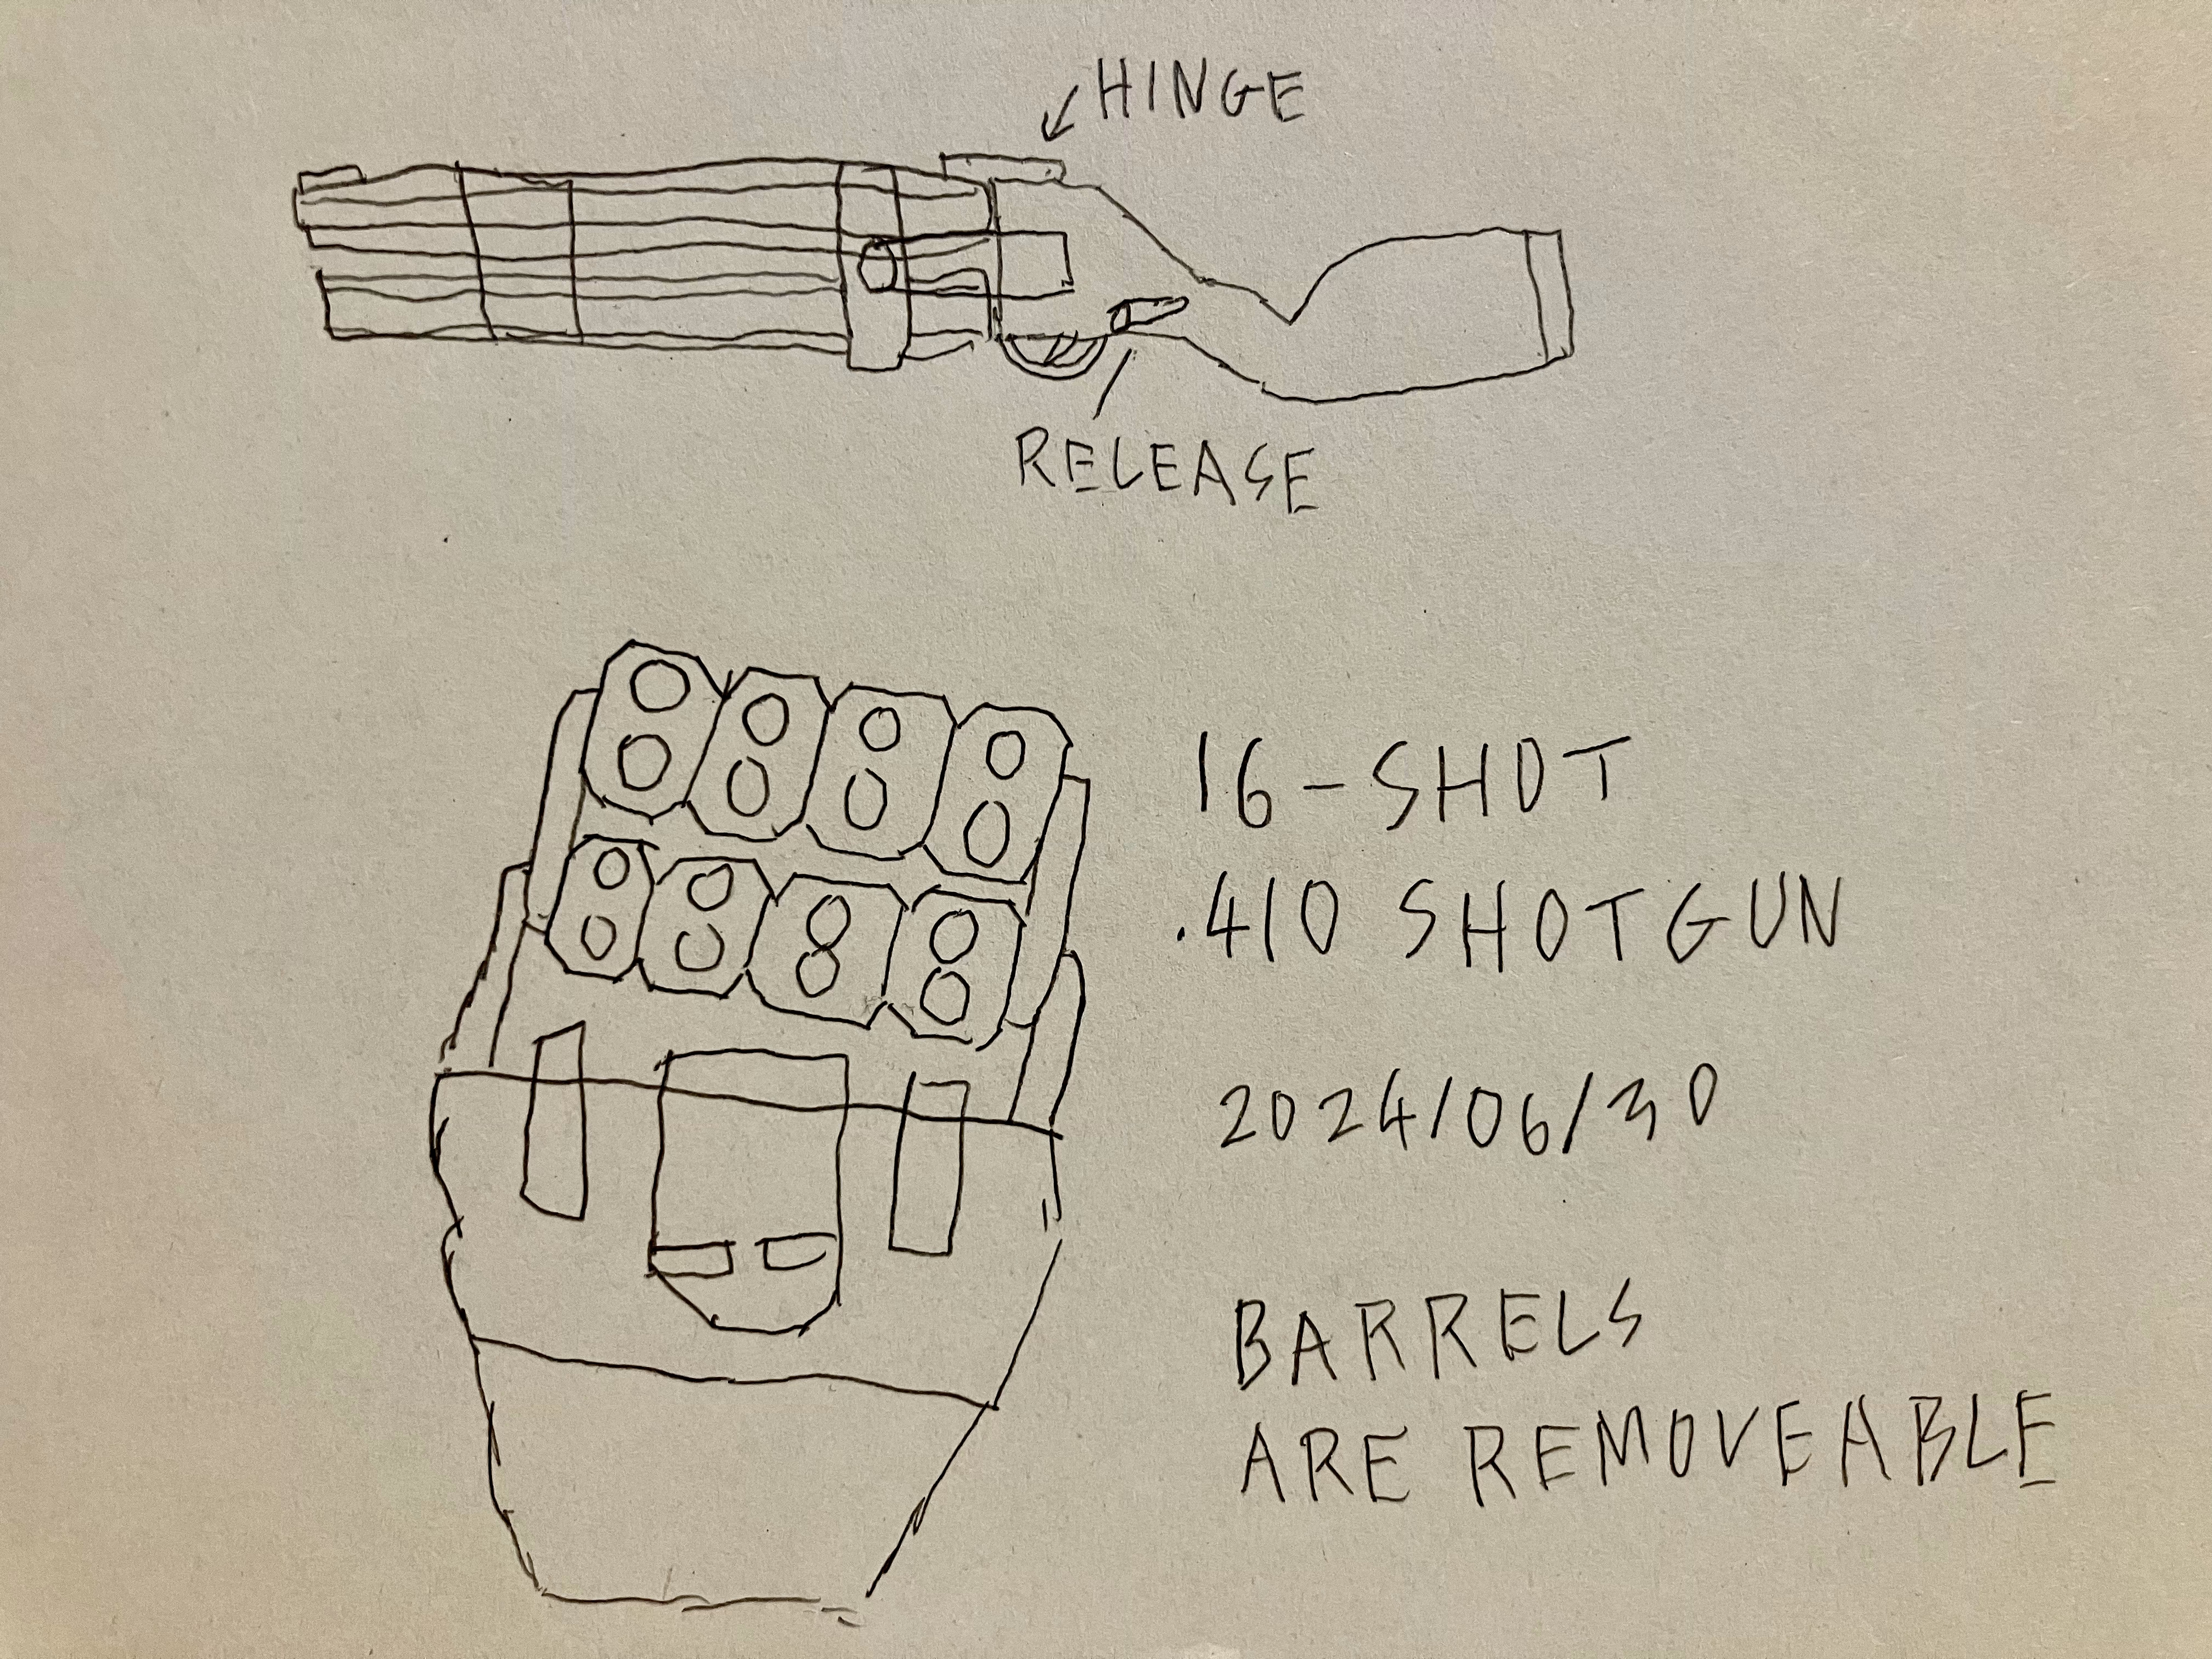 HINGE
RELEASE
16-SHOT
.410 SHOTGUN
2024/06/30
BARRELS
ARE REMOVEABLE